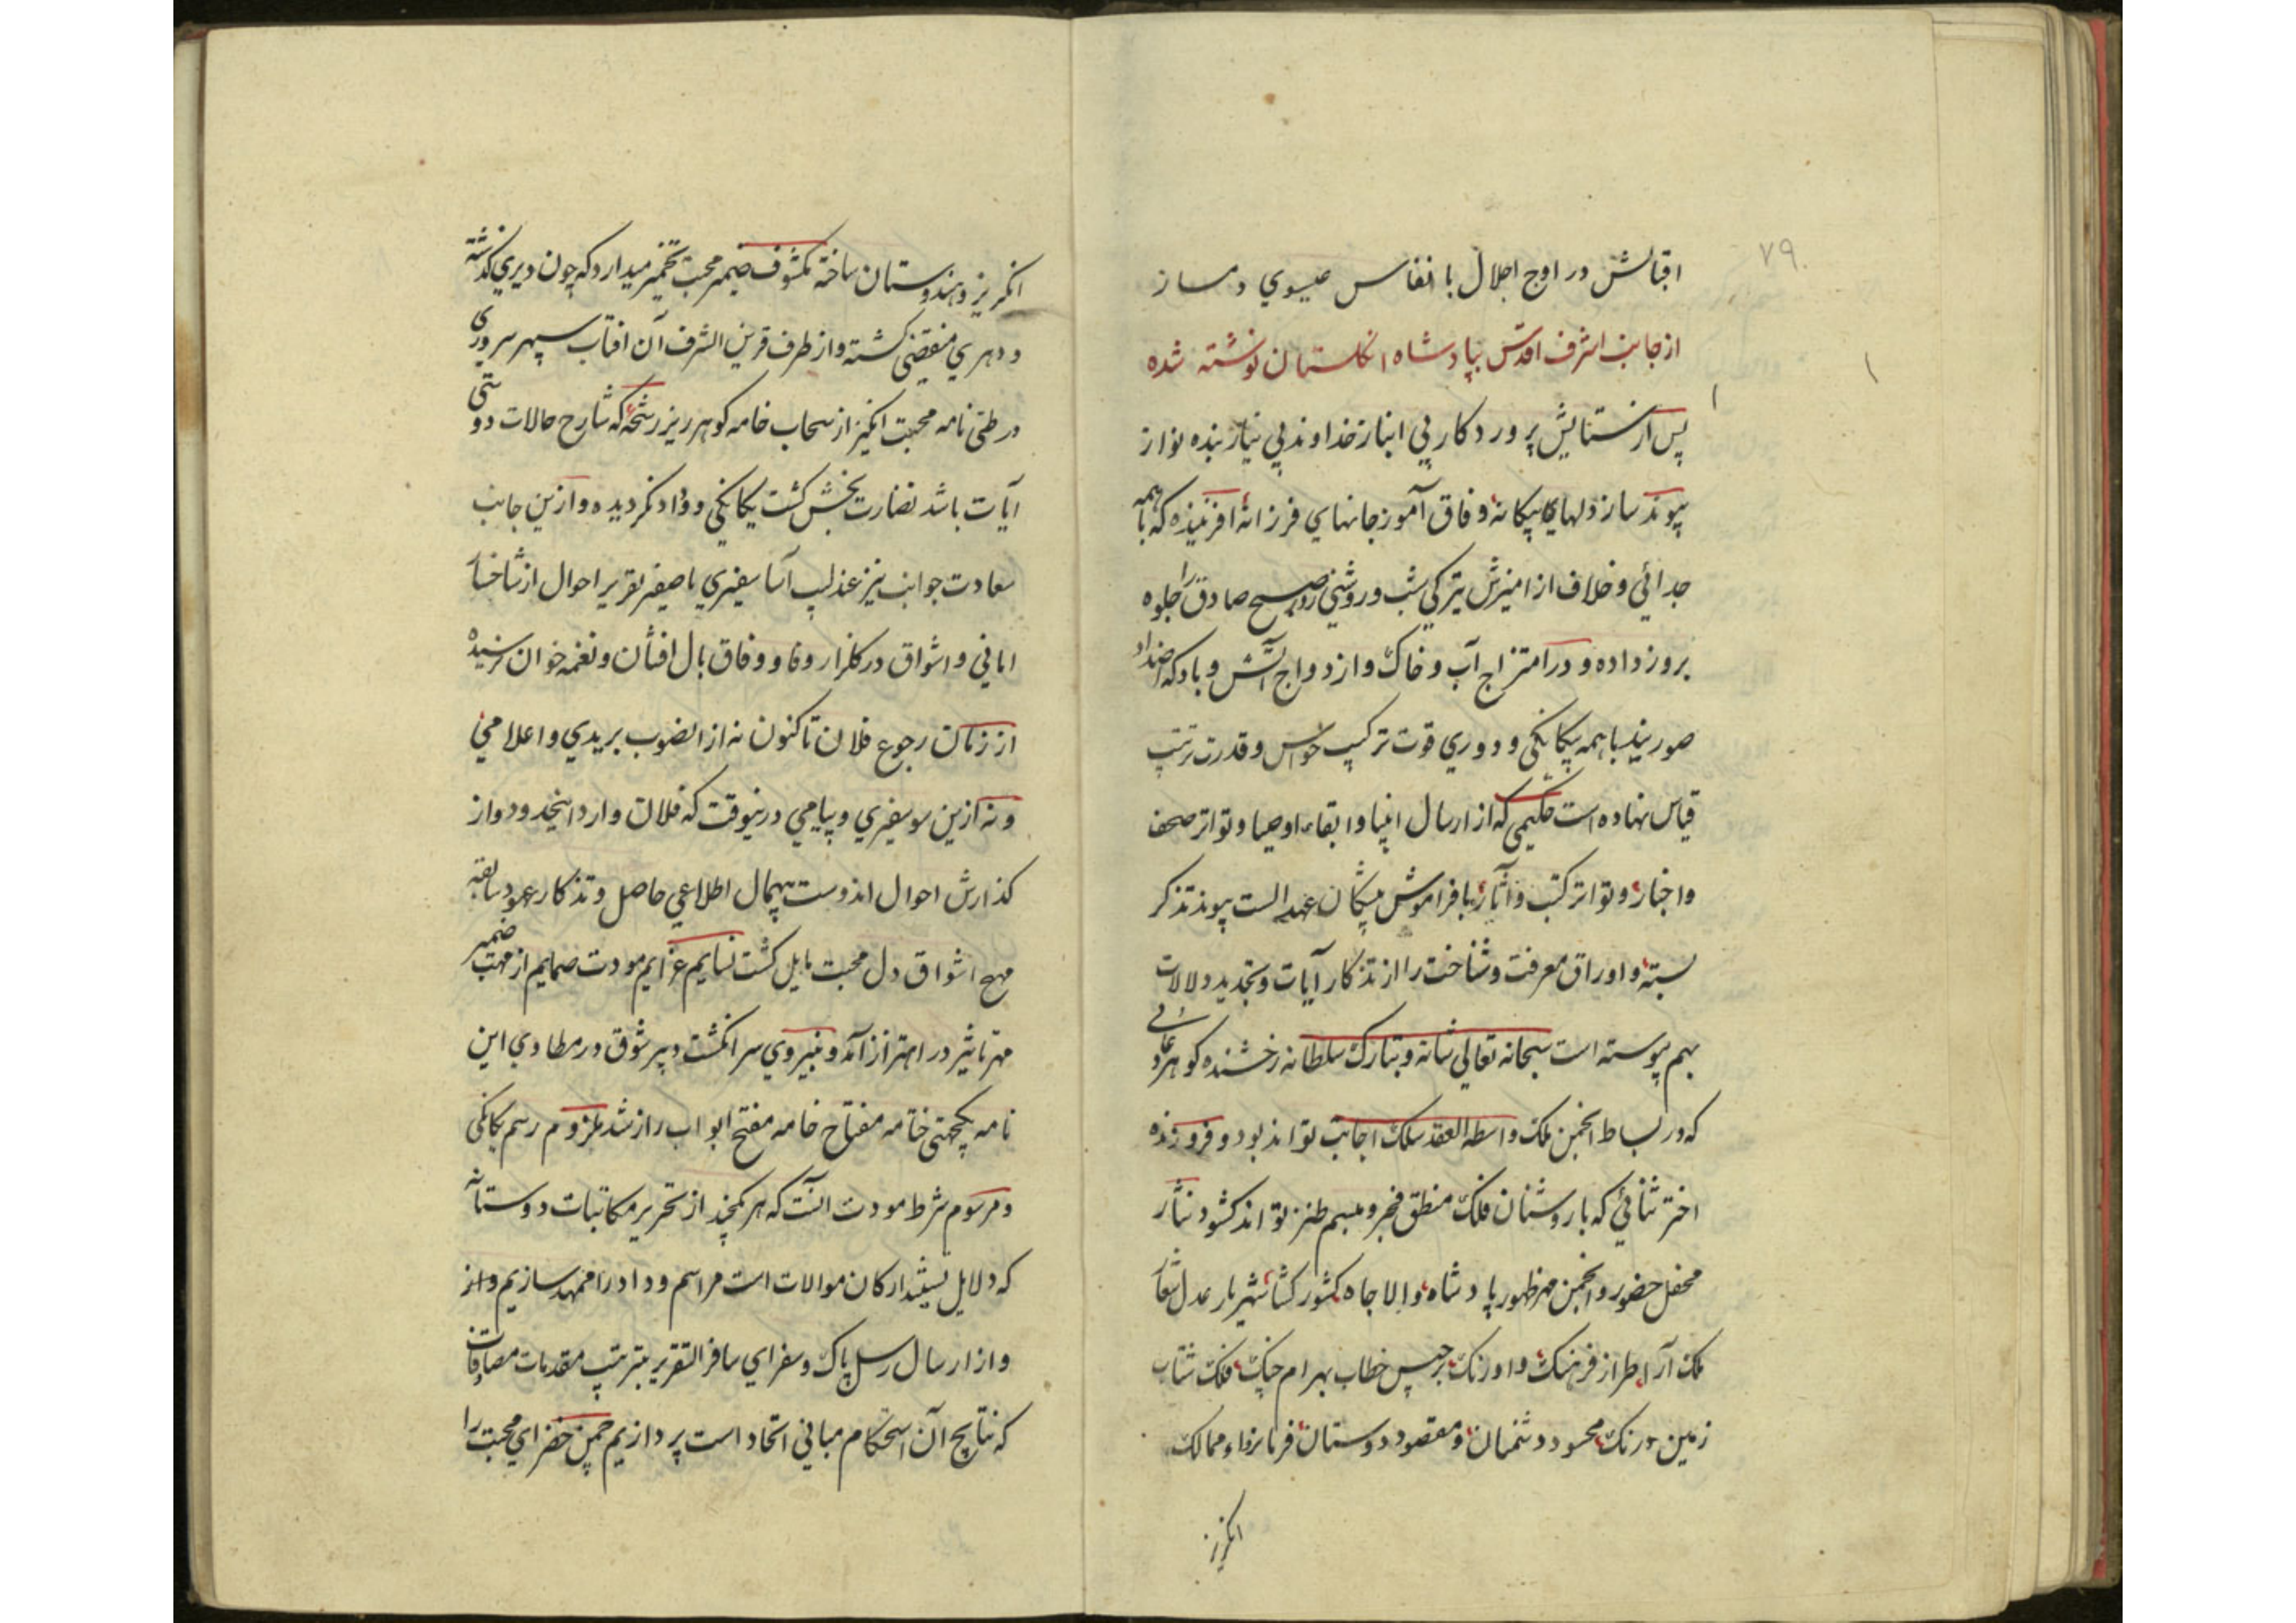 ۷۹
اقبالش در اوج اجلال با انفاس عیسوي دمساز
از جانب اشرف اقدس بپادشاه انگلستان نوشته شده
پس از ستایش پروردکار بي انباز خداوند بي نیاز بنده نواز
پیوند ساز دلهاي بیکانه وفاق آموز جانهاي فرزانه افریننده که با همه
جدائي و خلاف از امیزش تیرکي شب و روشني روز صبح صادق را جلوه
بروز داده و در امتزاج آب و خاک و ازدواج آتش و باد که اضداد
صوریند با همه بیکانکي و دوري قوت ترکیب حواس و قدرت ترتیب
قیاس نهاده است حکیمي که از ارسال انبیا و ابقاء اوصیا و تواتر صحف
و اخبار و تواتر کتب و آثار با فراموش میکشان عهد الست پیوند تذکر
بسته و اوراق معرفت و شناخت را از تذکار آیات و تجدید دلالات
بهم پیوسته است سبحانه تعالي شانه و تبارک سلطانه رخشنده کوهر دعائي
که در بساط انجمن ملک واسطه العقد سلک اجابت تواند بود و فروزنده
اختر ثنائي که با روشنان فلک منطق فخر و مبسم طنز تواند کشود نثار
محفل حضور و انجمن مهر ظهور پادشاه والا جاه کشور کشا شهریار عدل شعار
ملک آرا طراز فرهنک و اورنک برجیس خطاب بهرام جنک فلک شتاب
زمین درنک محسود دشمنان و مقصود دوستان فرمانرواء ممالک
انکریز
انکریز و هندوستان ساخته مکشوف ضمیر محبت تخمیر میدارد که چون دیري کذشته
و دهري منقضي کشته و از طرف قرین الشرف آن افتاب سپهر سروري
در طي نامه محبت انکیز از سحاب خامه کوهر ریز رشحه که شارح حالات دوستي
آیات باشد نضارت بخش کشت یکانکي و وداد نکردیده و ازین جانب
سعادت جوانب نیز عندلیب آسا سفیري با صفیر تقریر احوال از شاخسار
اماني و اشواق در کلزار وفا و وفاق بال افشان و نغمه خوان نرسیده
از زمان رجوع فلان تا کنون نه از انصوب بریدي و اعلامي
و نه ازین سو سفیري و پیامي درینوقت که فلان وارد اینحدود و از
کذارش احوال اندوست بیهمال اطلاعي حاصل و تذکار عهود سابقه
مهیج اشواق دل محبت مایل کشت نسایم عزایم مودت صمایم از مهب ضمیر
مهر تاثیر در اهتزاز آمد و بنیروي سر انکشت دبیر شوق در مطاوي این
نامه یکجهتي ختامه مفتاح خامه مفتح ابواب راز شد ملزوم رسم یکانکي
و مرسوم شرط مودت آنست که هر یکچند از تحریر مکاتبات دوستانه
که دلایل تشیید ارکان موالات است مراسم وداد را ممهد سازیم و از
و از ارسال رسل پاک و سفراي سافر التقریر بترتیب مقدمات مصافات
که نتایج آن استحکام مباني اتحاد است پردازیم چمن خضراي محبت را